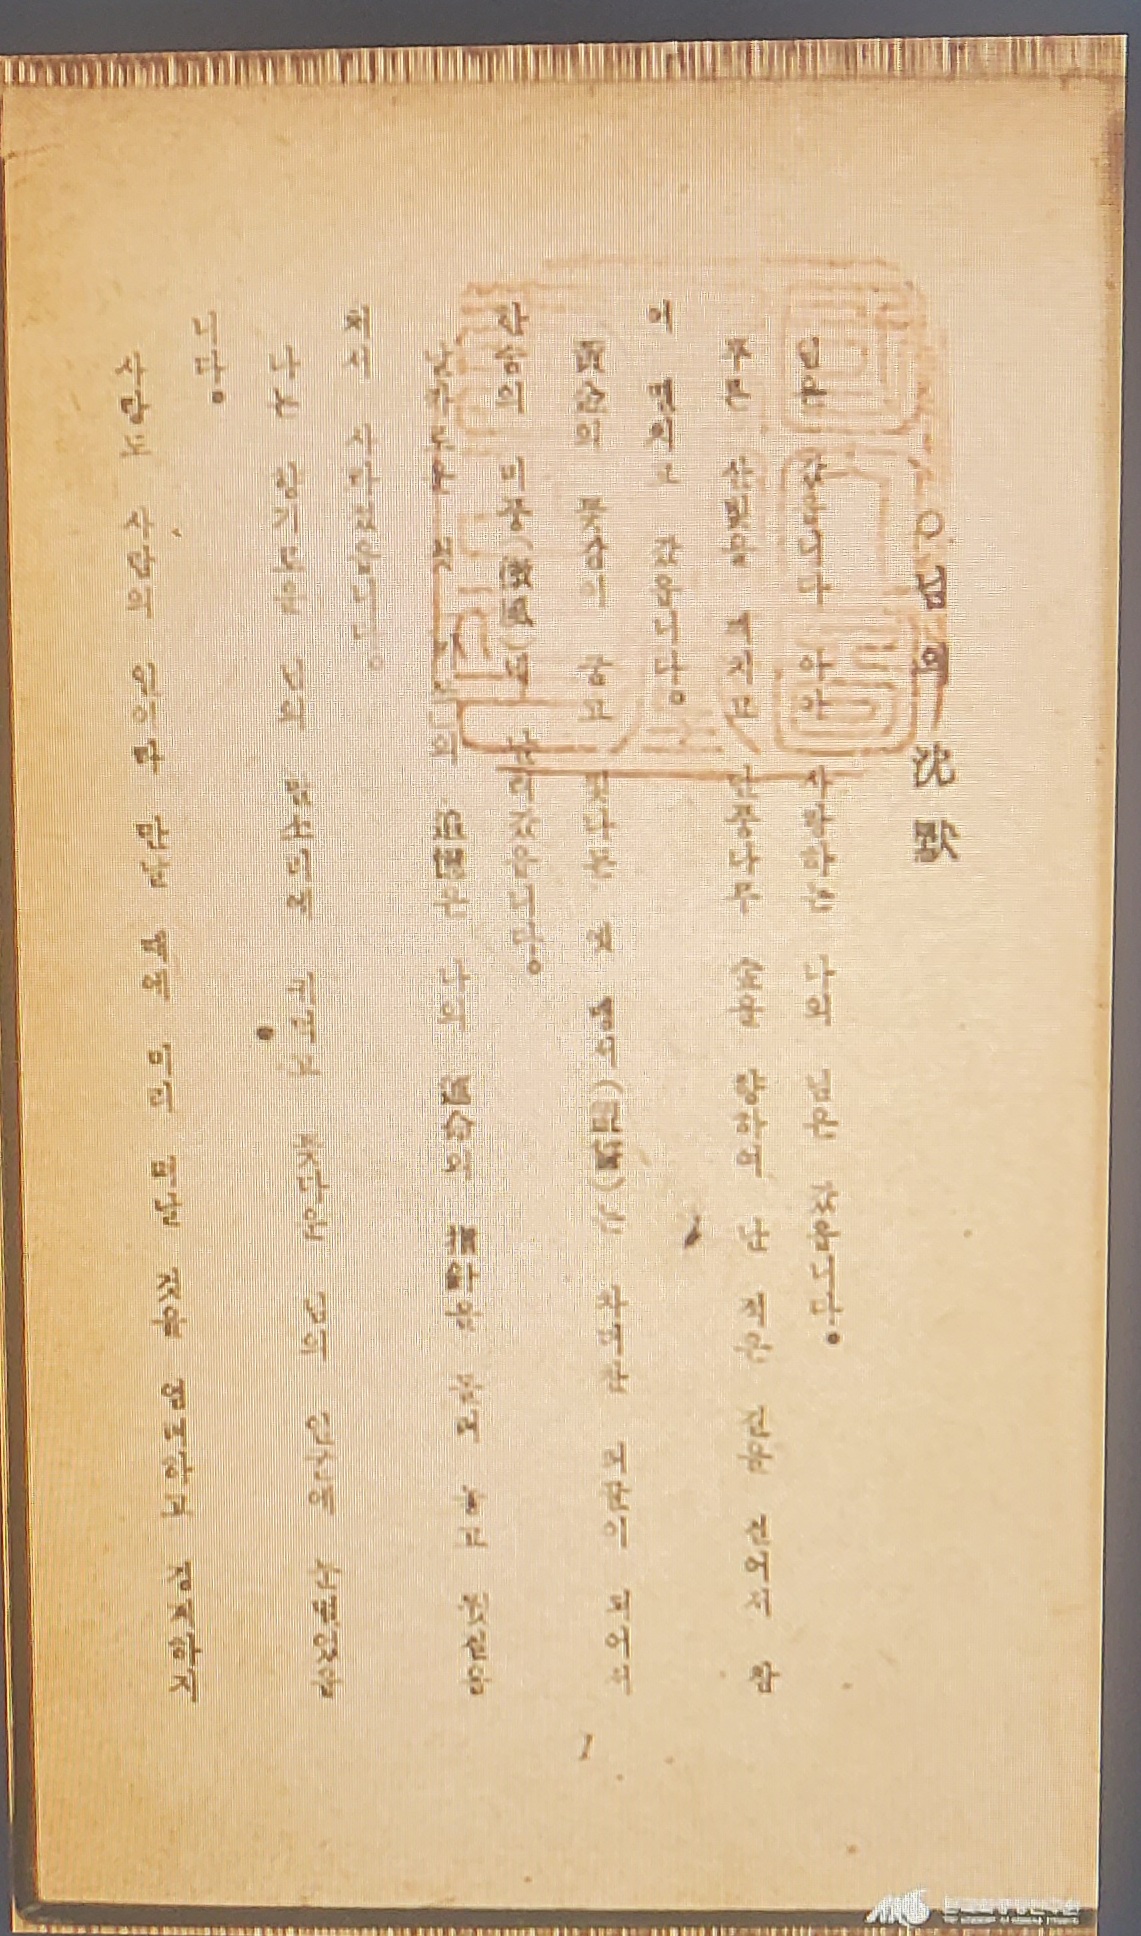 ○님의 沈默
님은 갔습니다 아아 사랑하는 나의 님은 갔습니다。
푸른 산빛을 깨치고 단풍나무 숲을 향하여 난 적은 길을 걸어서 참
어 떨치고 갔습니다。
黃金의 꽃같이 굳고 빛나든 옛 맹서(盟誓)는 차디찬 띠끌이 되어서
한숨의 미풍(微風)에 날려갔습니다。
날카로운 첫 의 追憶은 나의 運命의 指針을 돌려 놓고 뒷걸음
쳐서 사라졌습니다。
나는 향기로운 님의 말소리에 귀먹고 꽃다운 님의 얼굴에 눈멀었습
니다。
사랑도 사람의 일이라 만날 때에 미리 떠날 것을 염려하고 경계하지
1